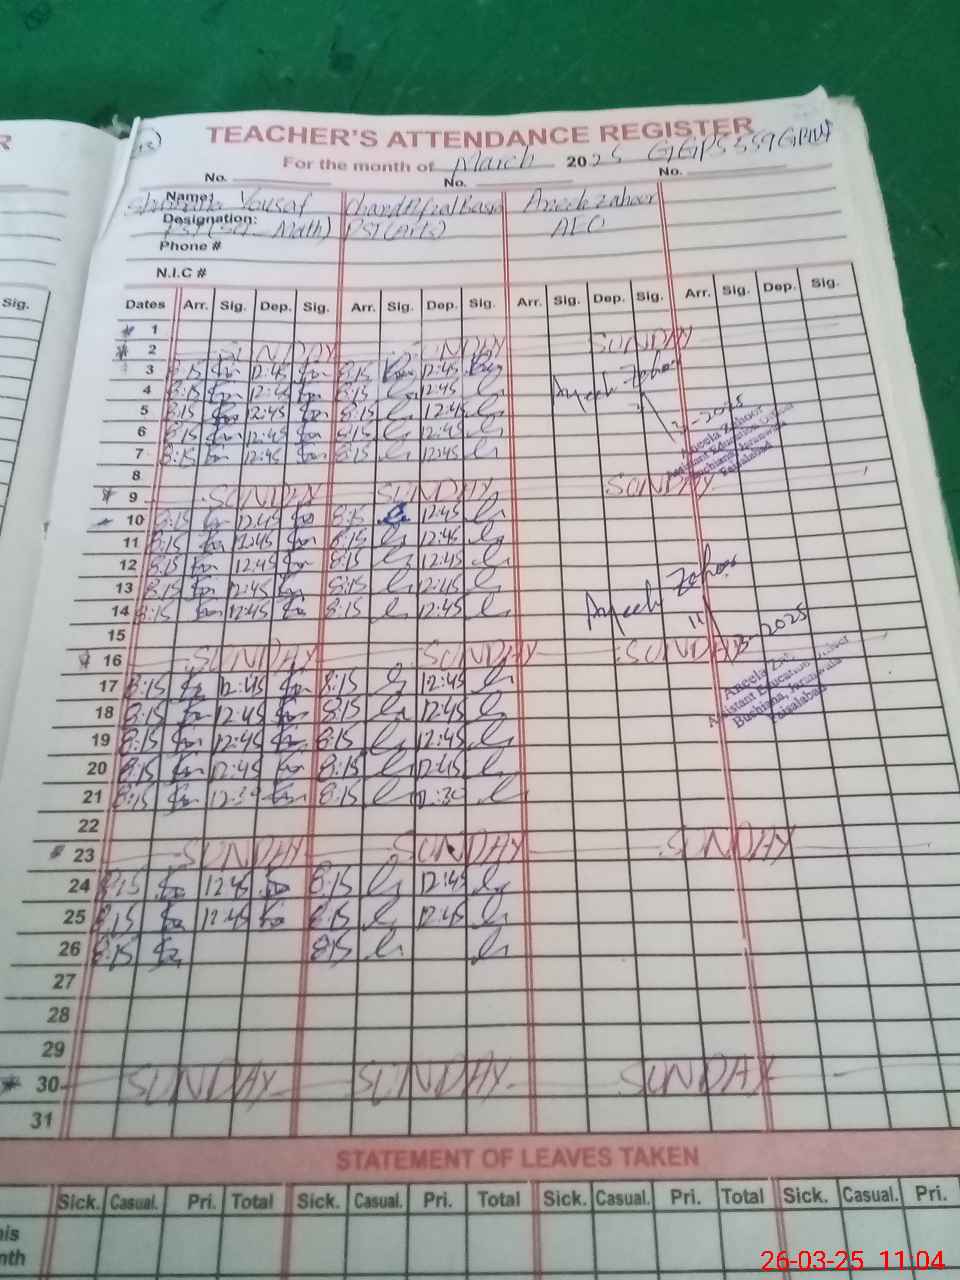 R
TEACHER'S ATTENDANCE REGISTER
For the month of March 2025 GGPS 559 GB
No. No. No.
Name: Yousaf Chand Afzal Aneela Zahoor
Designation: PST (Sci-Math) PST (Arts) AEO
Phone #
N.I.C #
Sig.
Dates Arr. Sig. Dep. Sig. Arr. Sig. Dep. Sig. Arr. Sig. Dep. Sig. Arr. Sig. Dep. Sig.
1
2 SUNDAY SUNDAY SUNDAY
3 8:15 12:45 8:15 12:45
4 8:15 12:45 8:15 12:45
5 8:15 12:45 8:15 12:45
6 8:15 12:45 8:15 12:45
7 8:15 12:45 8:15 12:45
Aneela Zahoor
3-2025
Aneela Zahoor
Assistant Education Officer
Buchiana, Jaranwala
Faisalabad
8
9 SUNDAY SUNDAY SUNDAY
10 8:15 12:45 8:15 12:45
11 8:15 12:45 8:15 12:45
12 8:15 12:45 8:15 12:45
13 8:15 12:45 8:15 12:45
14 8:15 12:45 8:15 12:45
Aneela Zahoor
11
3-2025
15
16 SUNDAY SUNDAY SUNDAY
Assistant Education Officer
Buchiana, Jaranwala
Faisalabad
17 8:15 12:45 8:15 12:45
18 8:15 12:45 8:15 12:45
19 8:15 12:45 8:15 12:45
20 8:15 12:45 8:15 12:45
21 8:15 12:30 8:15 12:30
22
23 SUNDAY SUNDAY SUNDAY
24 8:15 12:45 8:15 12:45
25 8:15 12:45 8:15 12:45
26 8:15 8:15
27
28
29
30 SUNDAY SUNDAY SUNDAY
31
STATEMENT OF LEAVES TAKEN
Sick. Casual. Pri. Total Sick. Casual. Pri. Total Sick. Casual. Pri. Total Sick. Casual. Pri.
his
nth
26-03-25 11:04